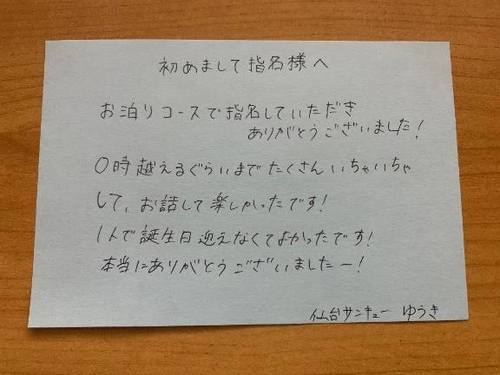 初めまして指名様へ
お泊りコースで指名していただき
ありがとうございました！
0時越えるぐらいまでたくさんいちゃいちゃ
して、お話して楽しかったです！
1人で誕生日迎えなくてよかったです！
本当にありがとうございましたー！
仙台サンキュー ゆうき